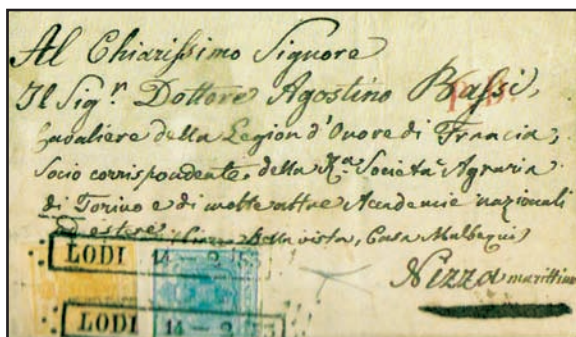 Al Chiarissimo Signore
Il Sig.r Dottore Agostino Bassi,
Cavaliere della Legion d'Onore di Francia,
Socio corrispondente della R.a Società Agraria
di Torino e di molte altre Accademie nazionali
ed estere (Bellavista, Casa
Nizza marittima
LODI 14 - 2
LODI 14 - 2